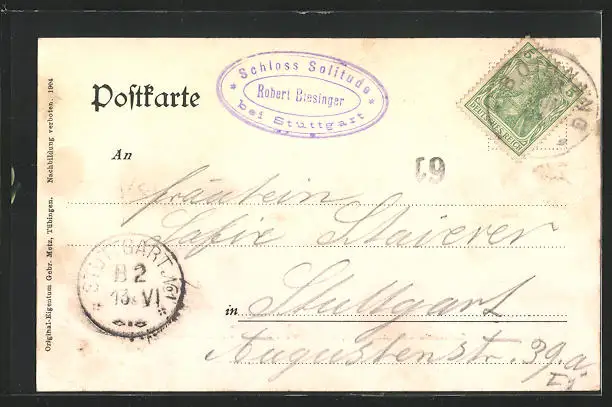 Postkarte
Schloss Solitude
Robert Biesinger
bei Stuttgart
5 5
DEUTSCHES REICH
An
61
Fräulein
Sofie Staierer
in Stuttgart
Augustenstr. 39.a.
STUTTGART No1
B 2
13. VI
Original-Eigentum Gebr. Metz, Tübingen. Nachbildung verboten. 1904